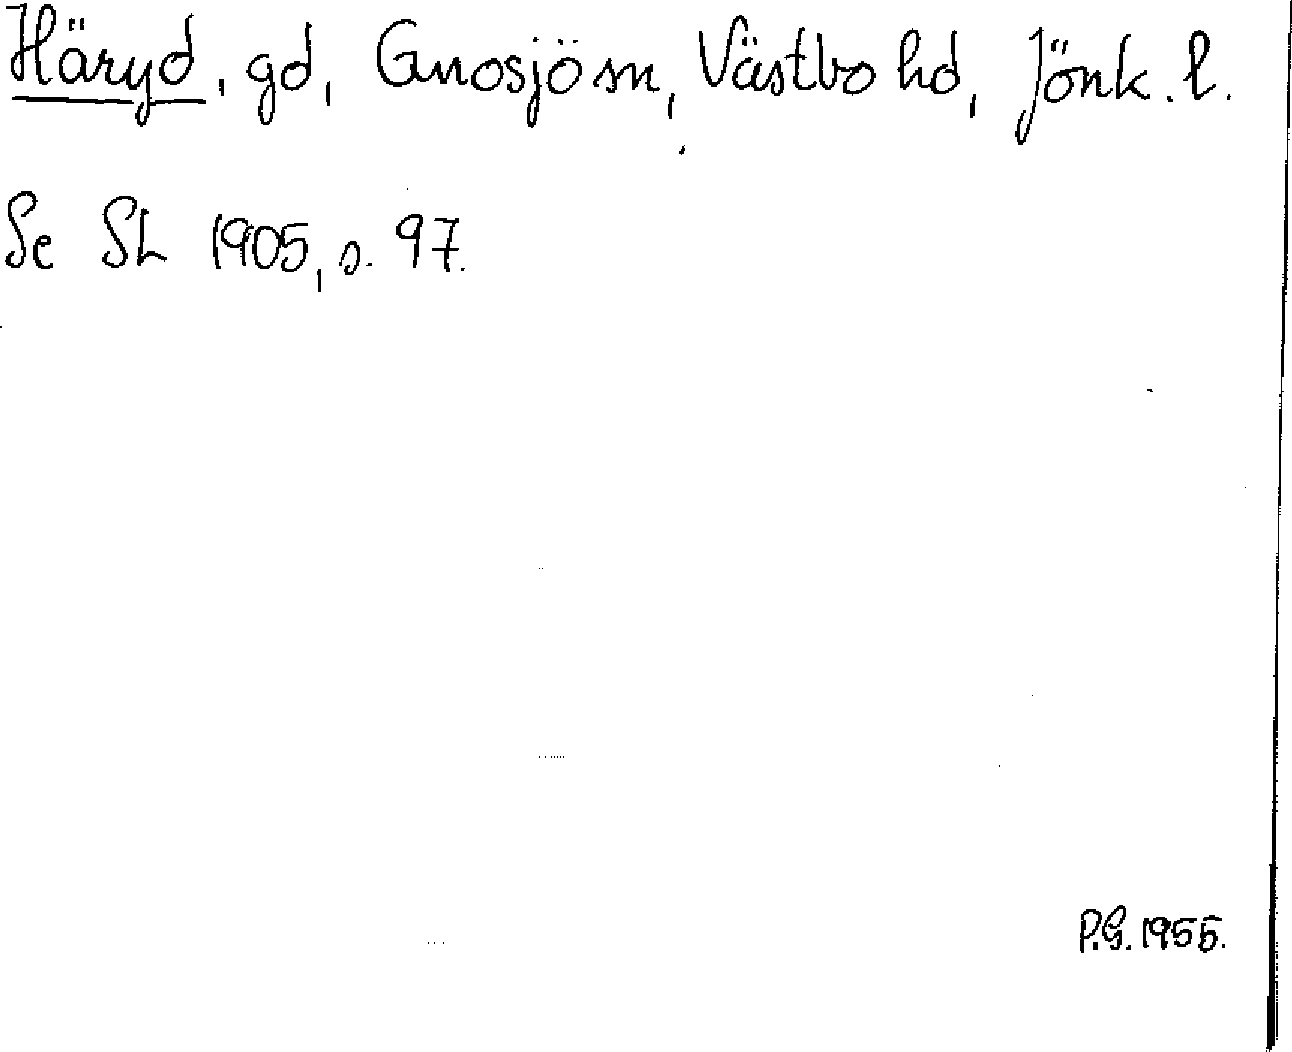 Häryd, gd, Gnosjö sn, Västbo hd, Jönk. l.
Se Sh 1905, s. 97.
P.G. 1955.